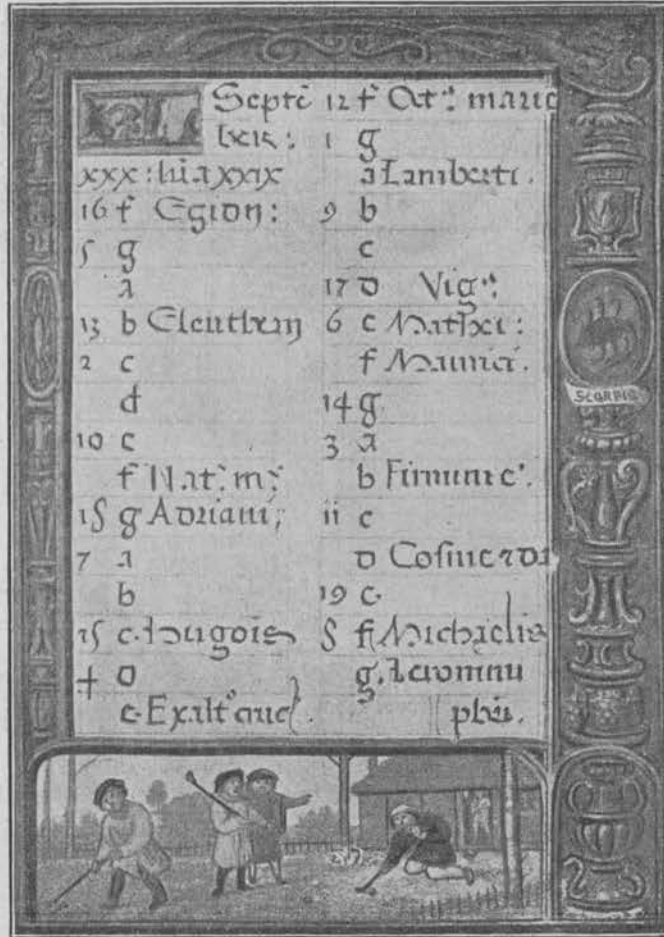 KL Septē
bris:
xxx: lūa xxix
16 f Egidii:
5 g
a
13 b Eleutherij
2 c
d
10 e
f Nat: m:
15 g Adriani;
7 a
b
15 c. hugois
4 d
e Exalt° cruc
12 f Oct: marie
1 g
a Lamberti.
9 b
c
17 d Vig:
6 e Mathei:
f Mauricii.
14 g.
3 a
b Firmini e.
11 c
d Cosme 7 da
19 e.
8 f Michaelis
g. Ieronimi
pbri.
SCORPIO